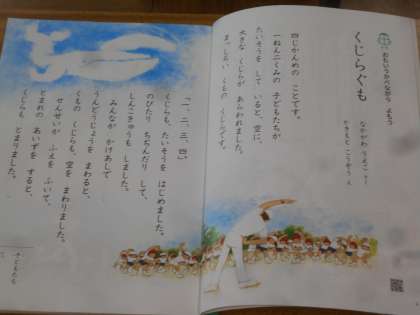 おもいうかべながら よもう
くじらぐも
なかがわ りえこ さく
かきもと こうぞう え
四じかんめの ことです。
一ねん二くみの 子どもたちが
たいそうを して いると、空に、
大きな くじらが あらわれました。
まっしろい くもの くじらです。
「一、二、三、四。」
くじらも、たいそうを はじめました。
のびたり ちぢんだり して、
しんこきゅうも しました。
みんなが かけあしで
うんどうじょうを まわると、
くもの くじらも、空を まわりました。
せんせいが ふえを ふいて、
とまれの あいずを すると、
くじらも とまりました。
子どもたち